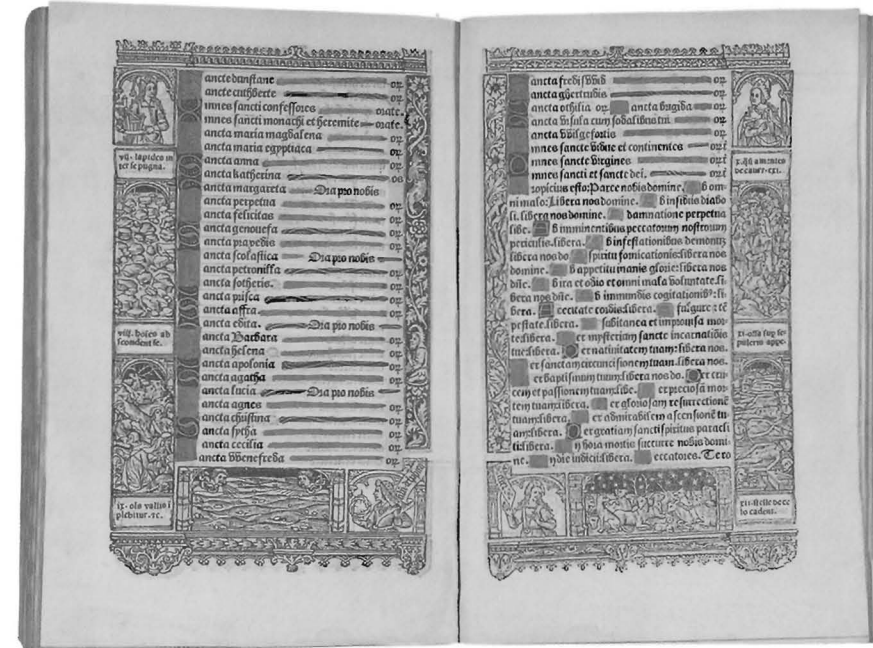 ancte dunstane
ancte cuthberte oꝝ
mnes sancti confessores orate.
mnes sancti monachi et heremite orate.
ancta maria magdalena oꝝ
ancta maria egyptiaca oꝝ
ancta anna oꝝ
ancta katherina
ancta margareta Ora pro nobis
ancta perpetua oꝝ
ancta felicitas oꝝ
ancta genouefa oꝝ
ancta praxedis oꝝ
ancta scolastica Ora pro nobis
ancta petronilla oꝝ
ancta sotheris. oꝝ
ancta prisca oꝝ
ancta affra oꝝ
ancta edita. Ora pro nobis
ancta Barbara oꝝ
ancta helena oꝝ
ancta apolonia oꝝ
ancta agatha oꝝ
ancta lucia Ora pro nobis
ancta agnes oꝝ
ancta christina oꝝ
ancta sytha oꝝ
ancta cecilia oꝝ
ancta wenefreda oꝝ
vij. lapides in
ter se pugna.
viij. boīes ab
scondent se.
ix. olo vallis i
plebitur. ꝛc.
ancta oꝝ
ancta oꝝ
ancta othilia oꝝ ancta brigida oꝝ
ancta vrsula cum sodalibus tui oꝝ
ancta wilgefortis oꝝ
mnes sancte vidue et continentes
mnes sancte virgines
mnes sancti et sancte dei.
ropicius esto: Parce nobis domine. b om-
ni malo: Libera nos domine. b insidiis diabo
li. libera nos domine. damnatione perpetua
libe. b imminentibus peccatorum nostrorum
periculis. libera. b infestationibus demonum
libera nos do spiritu fornicationis: libera nos
domine. b appetitu inanis glorie: libera nos
dñe. b ira et odio et omni mala voluntate. li
bera nos dñe. b immundis cogitationibꝰ: li-
bera. cecitate cordis: libera. fulgure: tē
pestate. libera. subitanea et improuisa mor-
te: libera. er mysterium sancte incarnatiōis
tue: libera. er natiuitatem tuam: libera nos.
er sanctam circuncisionem tuam: libera nos.
er baptismum tuum: libera nos do. er cru-
cem et passionem tuam: libe. er preciosā mor-
tem tuam: libera. er gloriosam resurrectionē
tuam: libera. er admirabilem ascensionē tu-
am: libera. er gratiam sancti spiritus paracli
ti: libera. n hora mortis succurre nobis domi-
ne. n die iudicii: libera. eccatores. Te ro
x.
de cauer. exi.
xi. ossa sup se-
pulcrin appe.
xij. stelle de ce
lo cadent.